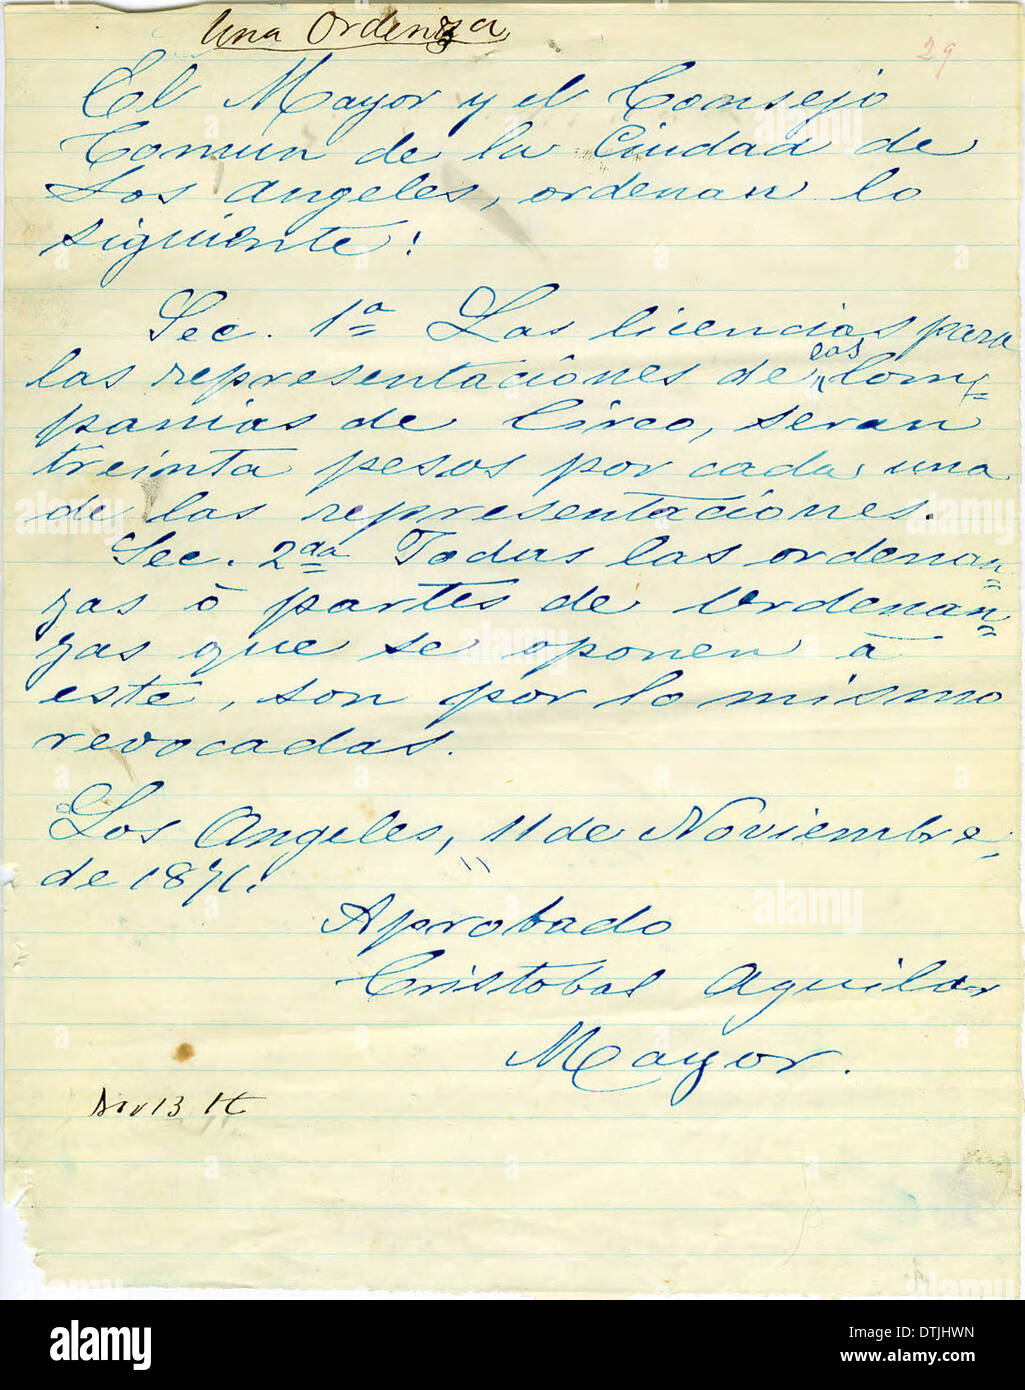 Una Ordenza
29
El Mayor y el Consejo
Comun de la Ciudad de
Los Angeles, ordenan lo
siguiente:
Sec. 1a Las licencias para
las representaciones de las Com=
panias de Circo, seran
treinta pesos por cada una
de las representaciones.
Sec. 2da Todas las ordenan=
zas ò partes de Ordenan=
zas que se oponen à
este, son por lo mismo
revocadas.
Los Angeles, 11 de Noviembre,
de 1871.
Aprobado
Cristobal Aguilar
Mayor.
Nov 13
alamy
Image ID: DTJHWN
www.alamy.com